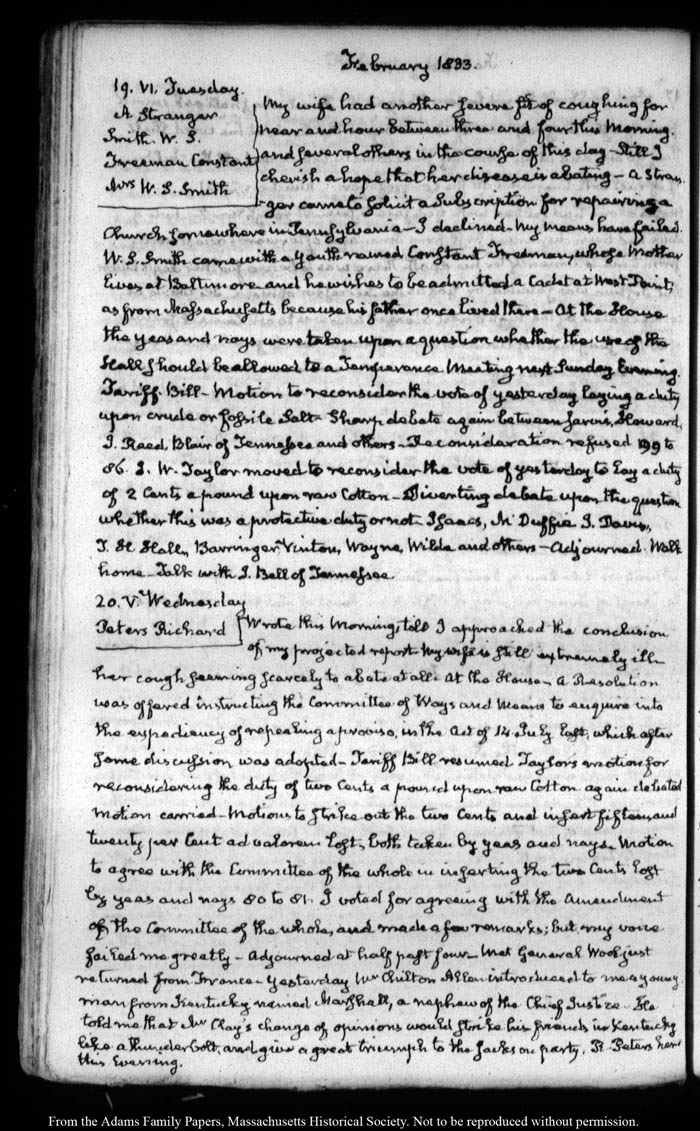 February 1833.
19. VI. Tuesday.
A. Stranger
Smith. W. S.
Freeman Constant
Mrs W. S. Smith
My wife had another severe fit of coughing for
near and hour between three and four this Morning.
and several others in the course of this day – Still I
cherish a hope that her disease is abating – A stran
-ger came to solicit a subscription for repairing a
Church somewhere in Pennsylvania – I declined – My means have failed.
W. S. Smith came with a youth named Constant Freeman, whose Mother
lives at Baltimore and he wishes to be admitted a Cadet at West Point,
as from Massachusetts because his father once lived there – At the House
the yeas and nays were taken upon a question whether the use of the
Hall should be allowed to a Temperance Meeting next Sunday Evening.
Tariff. Bill – Motion to reconsider the vote of yesterday laying a duty
upon crude or fossile Salt – Sharp debate again between Jarvis, Howard,
J. Reed, Blair of Tennessee and others – Reconsideration refused 99 to
86. J. W. Taylor moved to reconsider the vote of yesterday to lay a duty
of 2 Cents a pound upon raw Cotton – Diverting debate upon the question
whether this was a protective duty or not. Isaacs, McDuffie J. Davis,
T. H Hall, Barringer Vinton, Wayne, Wilde and others – Adjourned. Walk
home – Talk with J. Bell of Tennessee.
20. V. Wednesday
Peters Richard
Wrote this Morning, till I approached the conclusion
of my projected report My wife is still extremely ill
her cough seeming scarcely to abate at all. At the House – A Resolution
was offered instructing the Committee of Ways and Means to enquire into
the expediency of repealing a proviso, in the Act of 14 July last, which after
some discussion was adopted – Tariff Bill resumed Taylors motion for
reconsidering the duty of two Cents a pound upon raw Cotton again debated
Motion carried – Motions to strike out the two Cents and insert fifteen, and
twenty per Cent ad valorem lost, both taken by yeas and nays. Motion
to agree with the Committee of the whole in inserting the two Cents lost
by yeas and nays 80 to 81. I voted for agreeing with the Amendment
of the Committee of the whole, and made a few remarks; but my voice
failed me greatly – Adjourned at half past four – Met General Wool just
returned from France – Yesterday Mr Chilton Allen introduced to me a young
man from Kentucky named Marshall, a nephew of the Chief Justice – He
told me that Mr Clay's change of opinions would strike his friends in Kentucky
like a thunderbolt, and give a great triumph to the Jackson party. R. Peters here
this Evening.
From the Adams Family Papers, Massachusetts Historical Society. Not to be reproduced without permission.